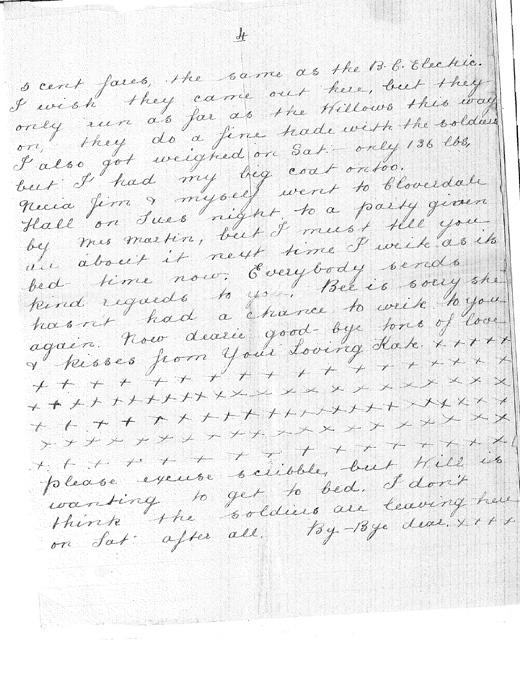 4
5 cent fares, the same as the B.C. Electric.
I wish they came out here, but they
only run as far as the Willows this way
on, they do a fine trade with the soldiers
I also got weighed on Sat- only 136 lbs,
but I had my big coat on too.
Jim & myself went to Cloverdale
Hall on Tues night to a party given
by Mrs Martin, but I must tell you
all about it next time I write as its
bed time now. Everybody sends
kind regards to you. Bee is sorry she
hasnt had a chance to write to you
again. Now dearie good-bye tons of love
& kisses from Your Loving Kate. + + + + +
+ + + + + + + + + + + + + + + +
+ + + + + + + + + + + + + + + + + + + + +
+ + + + + + + + + + + + + + + + + + + + +
+ + + + + + + + + + + + + + + + + + +
+ + + + + + + + + + + + +
Please excuse scribble, but Will is
wanting to get to bed. I don't
think the soldiers are leaving here
on Sat- after all. By-Bye dear. x + + +